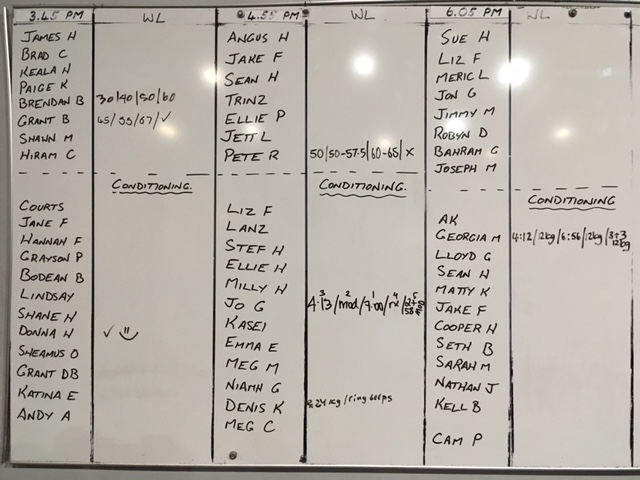 3.45 PM WL
JAMES H
BRAD C
KEALA H
PAIGE K
BRENDAN B 30/40/50/60
GRANT B 45/55/67/✓
SHAWN M
HIRAM C
CONDITIONING.
COURTS
JANE F
HANNAH F
GRAYSON P
BODEAN B
LINDSAY
SHANE H
DONNA H ✓
SHEAMUS O
GRANT DB
KATINA E
ANDY A
4.55 PM WL
ANGUS H
JAKE F
SEAN H
TRINZ
ELLIE P
JETT L
PETE R 50/50-57.5/60-65/x
CONDITIONING.
LIZ F
LANZ
STEF H
ELLIE H
MILLY H
JO G 4:13/mod/7:00/rx/
KASEI
EMMA E
MEG M
NIAMH G
DENIS K 24kg/ring dips
MEG C
6.05 PM WL
SUE H
LIZ F
MERIC L
JON G
JIMMY M
ROBYN D
BAHRAM G
JOSEPH M
CONDITIONING
AK
GEORGIA M 4:12/12kg/6:56/12kg/3+3 12kg
LLOYD G
SEAN H
MATTY K
JAKE F
COOPER H
SETH B
SARAH M
NATHAN J
KELL B
CAM P